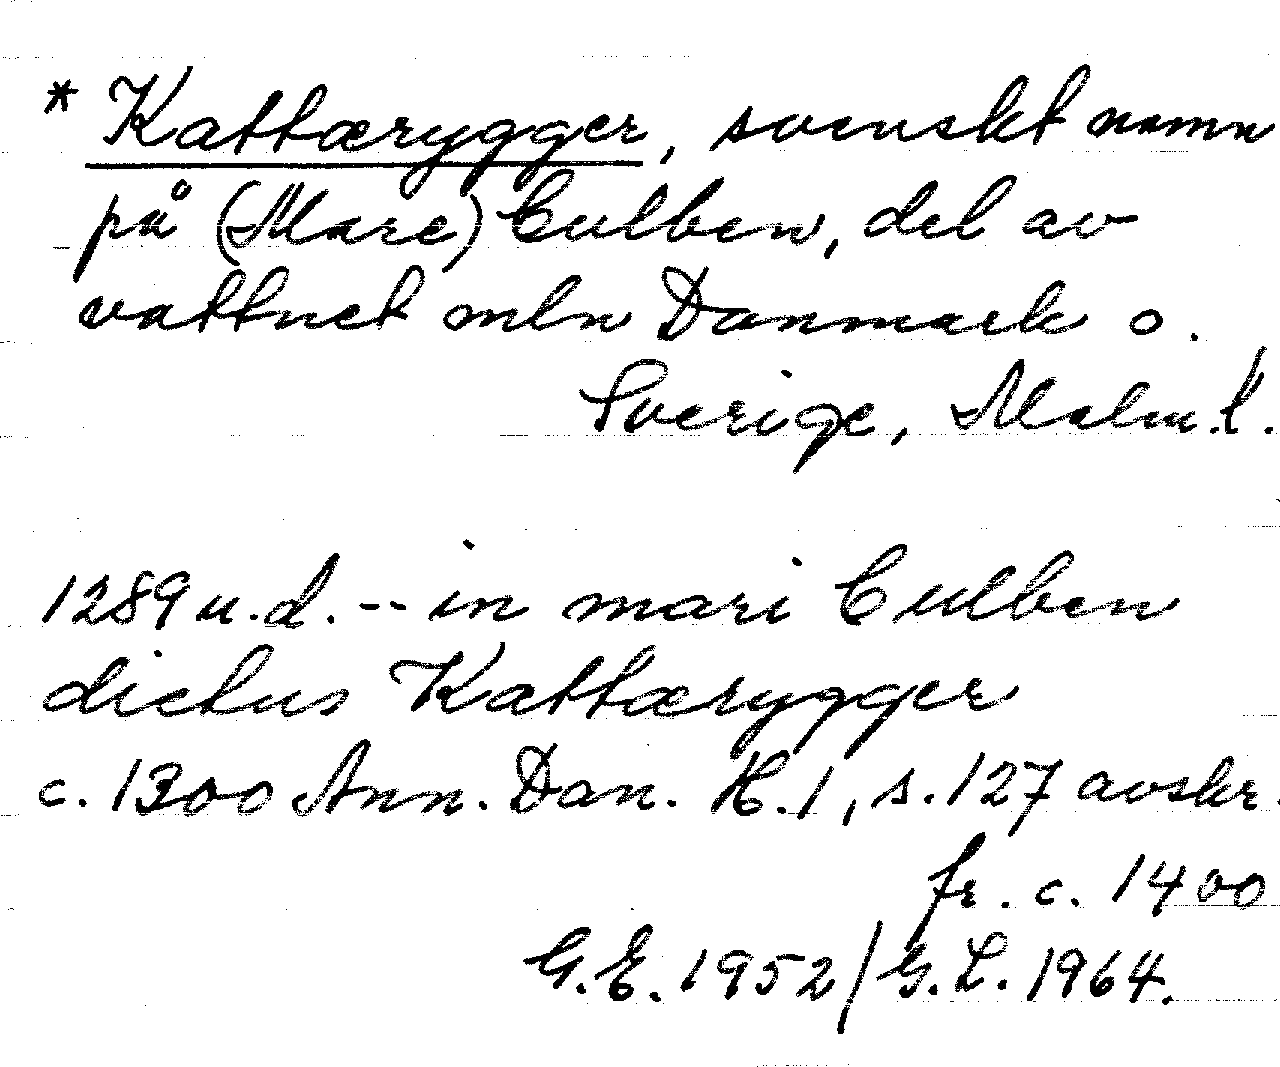 * Kattærygger, svenskt namn
på (Mare) Culben, del av
vattnet mln Danmark o.
Sverige, Malm.l.
1289 u.d. -- in mari Culben
dictus Kattærygger
c. 1300 Ann. Dan. K. 1, s. 127 avskr.
fr. c. 1400
G.E. 1952/G.L. 1964.